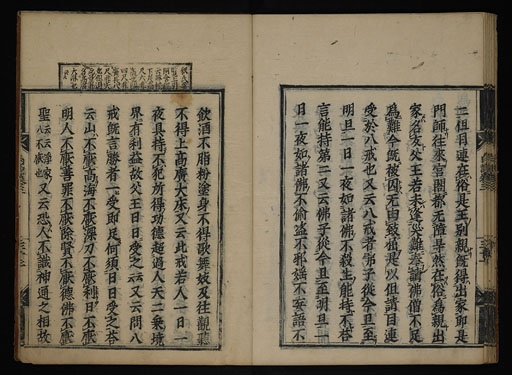 二但目連在俗是王別親既得出家即是
門師往來宮閤都无障导然在俗爲親出
家名友父王若未逢災難奉請佛僧不足
爲難今既被囚无由致殖是以但請目連
受於八戒也又云八戒者佛子從今旦至
明旦一日一夜如諸佛不殺生能持不答
言能持第二又云佛子從今旦至明旦一
日一夜如諸佛不偷盗不邪婬不妄語不
飲酒不脂粉塗身不得歌舞妓及往觀聽
不得上高廣大床又云此戒若人一日一
夜具持不犯所得功德超過人天二乗境
界有利益故父王日日受之云又云問八
戒既言勝者一受即足何須日日受之荅
云山不厭高海不厭深刀不厭利日不厭
明人不厭善罪不厭除賢不厭德佛不厭
聖又云恐人不識神通之相故